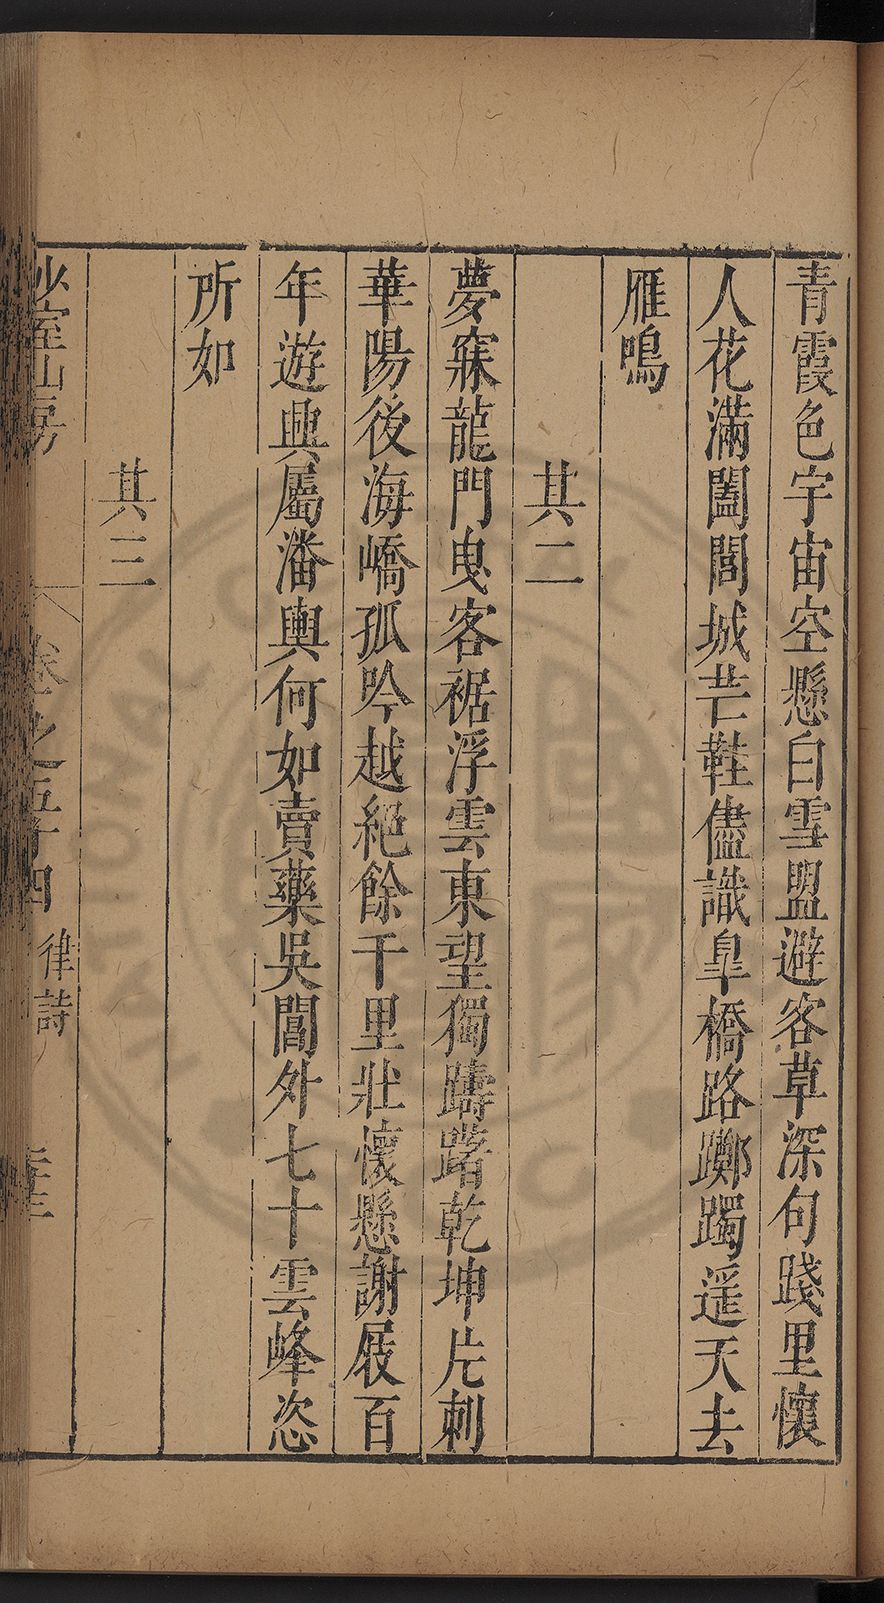 青霞色宇宙空懸白雪盟避客草深句踐里懷
人花滿闔閭城芒鞋儘識臯橋路躑躅遥天去
雁鳴
其二
夢寐龍門曳客裾浮雲東望獨躊躇乾坤片刺
華陽後海嶠孤吟越絕餘千里壯懷懸謝屐百
年遊興屬潘輿何如賣藥吳閶外七十雲峰恣
所如
其三
少室山房
卷之五十四 律詩